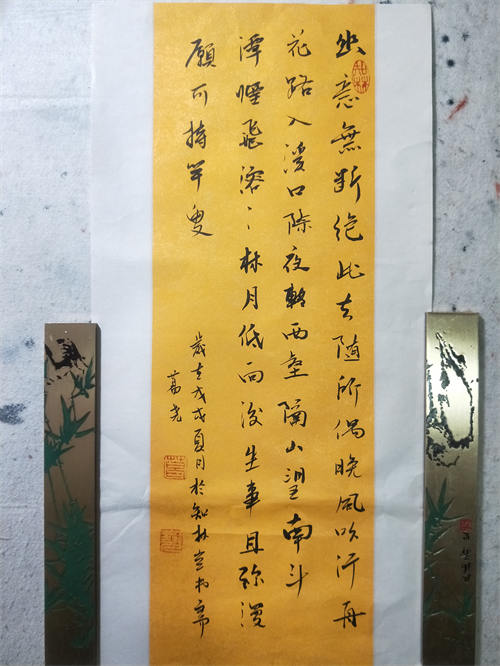 幽意無斷絕此去隨所偶晚風吹行舟
花路入溪口際夜轉西壑隔山望南斗
潭煙飛溶溶林月低向後生事且彌漫
願可持竿叟
歲在戊戌夏月於知林堂書齋